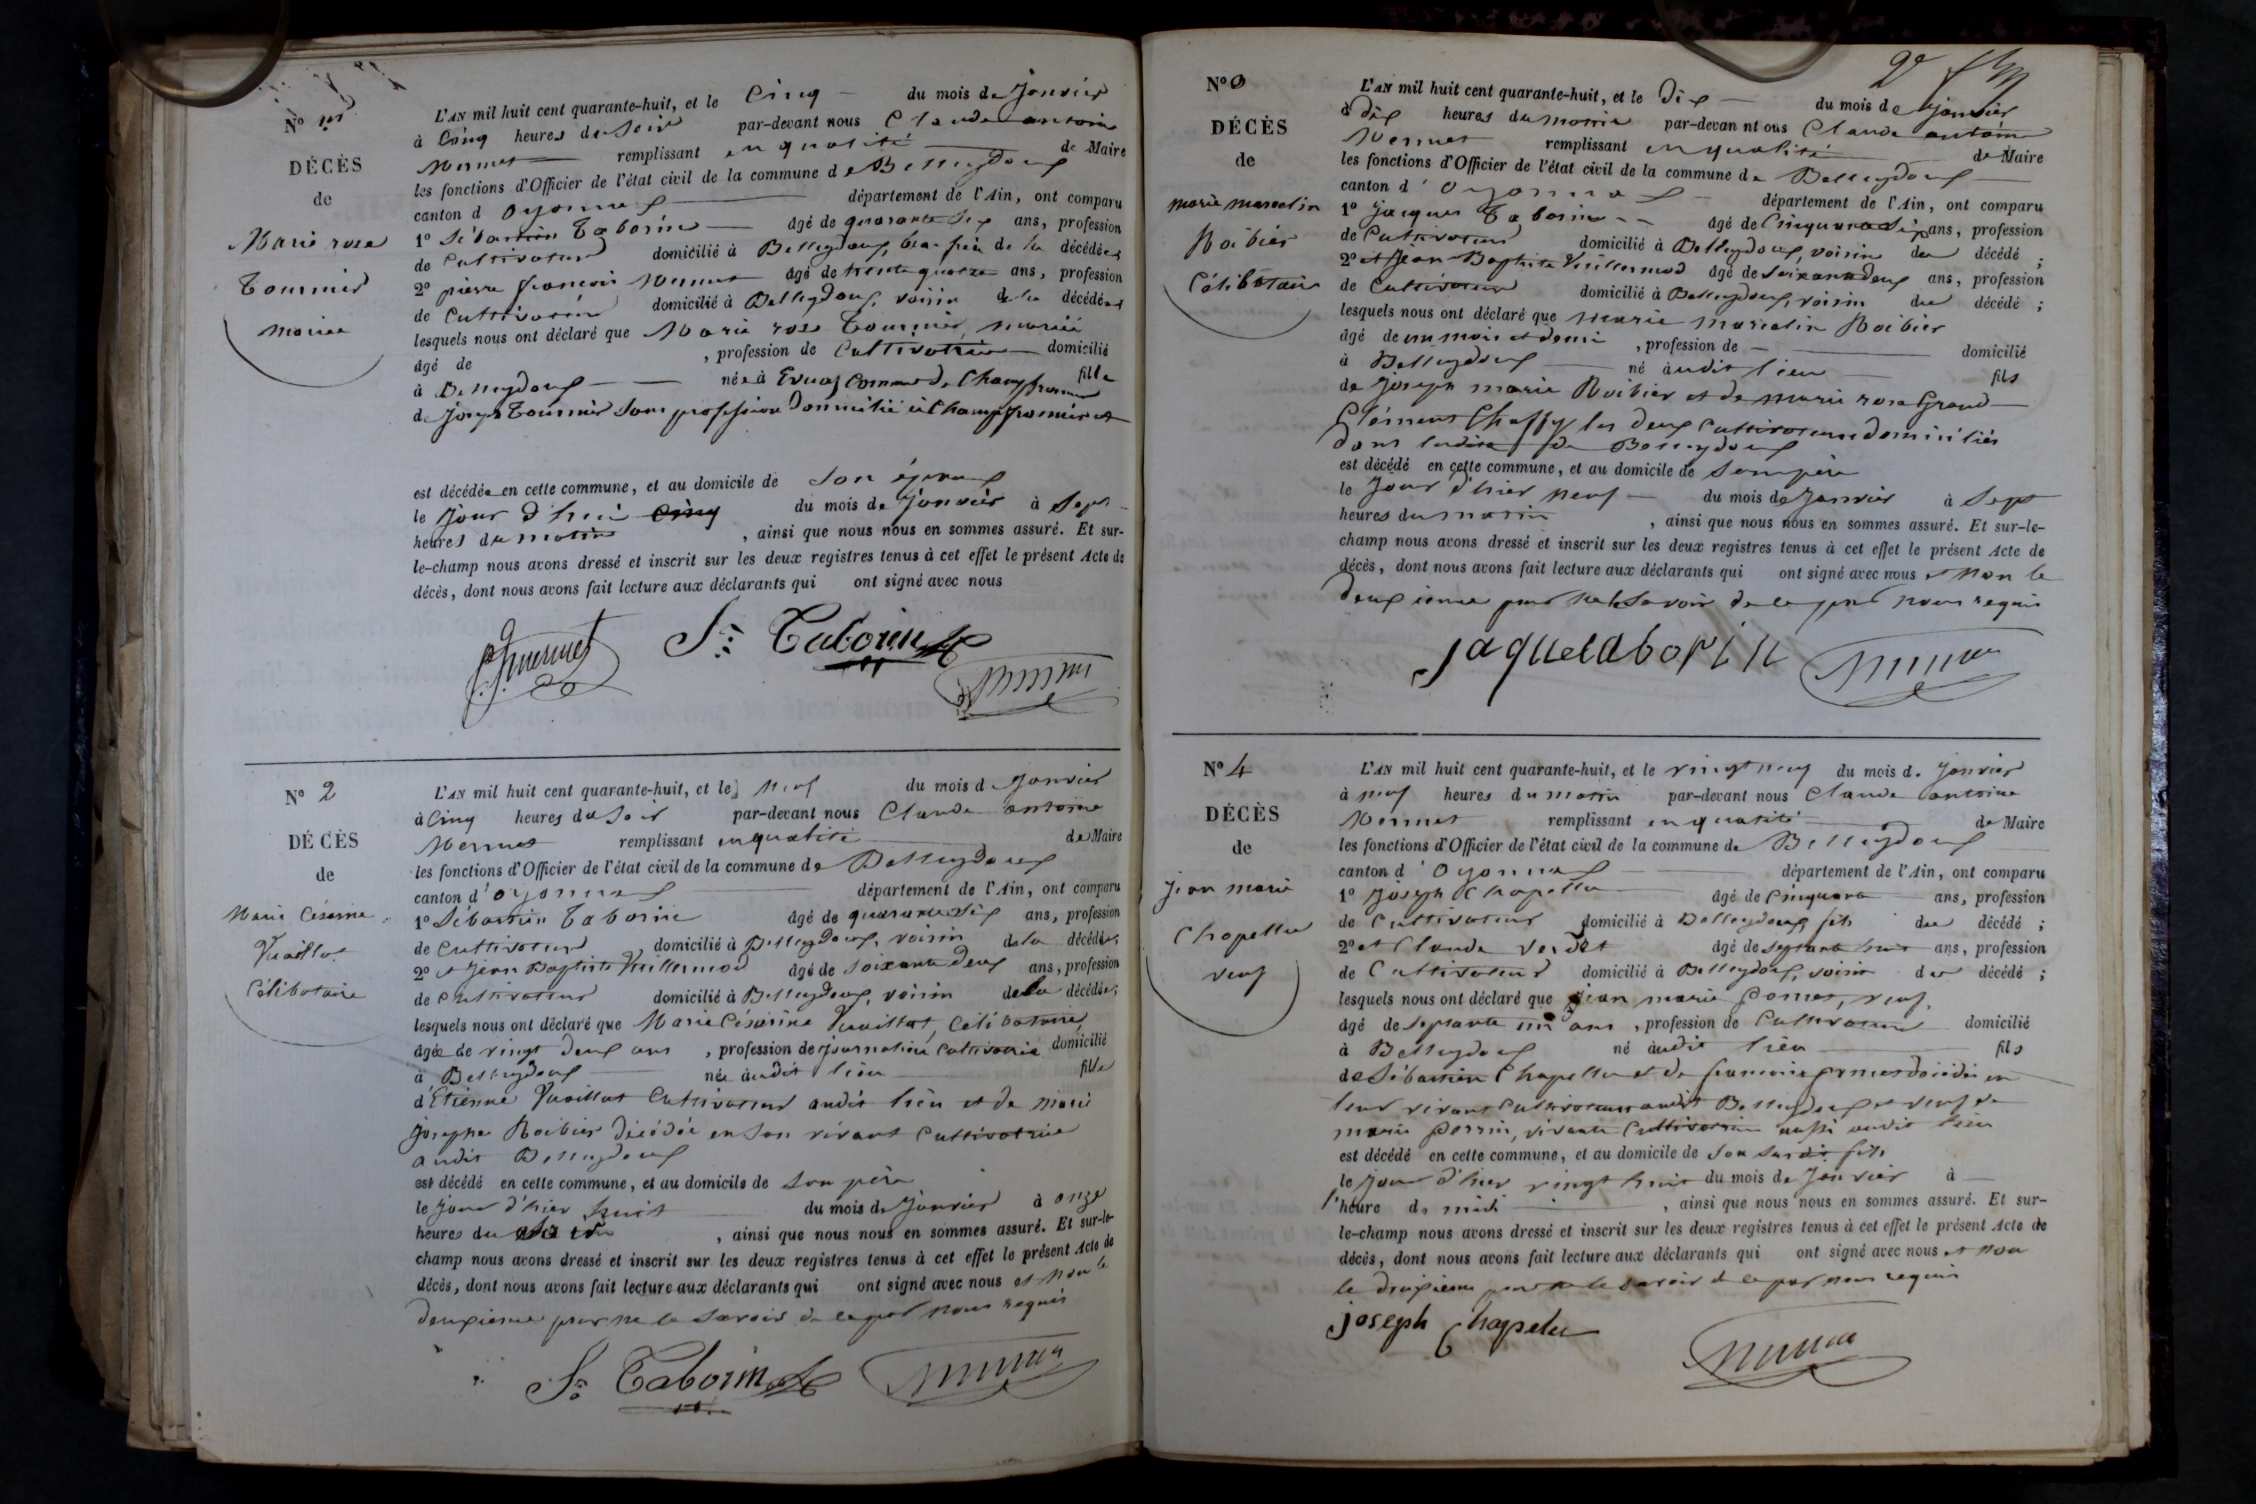 N° 1er
DÉCÈS
de
Marie rose
Tournier
mariée
L'AN mil huit cent quarante-huit, et le Cinq du mois de Janvier
à Cinq heures du Soir par-devant nous Claude antoine
Mermet remplissant en qualité de Maire
les fonctions d'Officier de l'état civil de la commune de Belleydoux
canton d oyonnax département de l'Ain, ont comparu
1° Sébastien Taborin âgé de quarante six ans, profession
de Cultivateur domicilié à Belleydoux, beau frère de la décédée
2° pierre françois Mermet âgé de trente quatre ans, profession
de Cultivateur domicilié à Belleydoux, voisin de la décédée
lesquels nous ont déclaré que Marie rose Tournier, mariée
âgé de , profession de Cultivatrice domicilié
à Belleydoux née à Evuaz Commune de Champfromier fille
de Joseph Tournier Sans profession Domicilié à Champfromier et
est décédée en cette commune, et au domicile de Son époux
le Jour d'hui Cinq du mois de Janvier à Sept
heures du matin , ainsi que nous nous en sommes assuré. Et sur-
le-champ nous avons dressé et inscrit sur les deux registres tenus à cet effet le présent Acte de
décès, dont nous avons fait lecture aux déclarants qui ont signé avec nous
Mermet Sn Taborin Mermet
N° 2
DÉCÈS
de
Marie Césarine
Vuaillat
Célibataire
L'AN mil huit cent quarante-huit, et le neuf du mois d Janvier
à Cinq heures du Soir par-devant nous Claude antoine
Mermet remplissant en qualité de Maire
les fonctions d'Officier de l'état civil de la commune de Belleydoux
canton d'oyonnax département de l'Ain, ont comparu
1° Sébastien Taborin âgé de quarante Six ans, profession
de Cultivateur domicilié à Belleydoux, voisin de la décédée;
2° et Jean Baptiste Vuillermoz âgé de soixante deux ans, profession
de Cultivateur domicilié à Belleydoux, voisin de la décédée;
lesquels nous ont déclaré que Marie Césarine Vuaillat, Célibataire,
âgée de vingt deux ans , profession de journalière Cultivatrice domicilié
à Belleydoux née audit lieu fille
d'Etienne Vuaillat Cultivateur audit lieu et de marie
Josephe Roibier décédée en Son vivant Cultivatrice
audit Belleydoux
est décédé en cette commune, et au domicile de Son père
le Jour d'hier huit du mois de Janvier à onze
heures du Soir , ainsi que nous nous en sommes assuré. Et sur-le-
champ nous avons dressé et inscrit sur les deux registres tenus à cet effet le présent Acte de
décès, dont nous avons fait lecture aux déclarants qui ont signé avec nous et non le
deuxieme pour ne le Savoir de ce par nous requis
Sn Taborin Mermet
2e
N° 3
DÉCÈS
de
marie marcelin
Roibier
Célibataire
L'AN mil huit cent quarante-huit, et le Dix du mois de Janvier
à dix heures du matin par-devan nt ous Claude antoine
Mermet remplissant en qualité de Maire
les fonctions d'Officier de l'état civil de la commune de Belleydoux
canton d'Oyonnax département de l'Ain, ont comparu
1° Jacques Taborin âgé de Cinquante Six ans, profession
de Cultivateur domicilié à Belleydoux, voisin du décédé ;
2° et Jean Baptiste Vuillermoz âgé de Soixante deux ans, profession
de Cultivateur domicilié à Belleydoux, voisin du décédé ;
lesquels nous ont déclaré que Marie marcelin Roibier
âgé de un mois et demi , profession de domicilié
à Belleydoux né audit lieu fils
de Joseph marie Roibier et de marie rose Grand
Clément Chaffy les deux Cultivateurs domiciliés
dans ledit de Belleydoux
est décédé en cette commune, et au domicile de Son père
le Jour d'hier neuf du mois de Janvier à Sept
heures du matin , ainsi que nous nous en sommes assuré. Et sur-le-
champ nous avons dressé et inscrit sur les deux registres tenus à cet effet le présent Acte de
décès, dont nous avons fait lecture aux déclarants qui ont signé avec nous et non le
deuxieme pour ne le Savoir de ce par nous requis
Jaquetaborin Mermet
N° 4
DÉCÈS
de
Jean marie
Chapellu
veuf
L'AN mil huit cent quarante-huit, et le vingt neuf du mois d. Janvier
à neuf heures du matin par-devant nous Claude antoine
Mermet remplissant en qualité de Maire
les fonctions d'Officier de l'état civil de la commune de Belleydoux
canton d'Oyonnax département de l'Ain, ont comparu
1° Joseph Chapellu âgé de Cinquante ans, profession
de Cultivateur domicilié à Belleydoux, fils du décédé ;
2° et Claude Verdet âgé de septante huit ans, profession
de Cultivateur domicilié à Belleydoux, voisin du décédé ;
lesquels nous ont déclaré que jean marie Poncet, veuf,
âgé de septante un ans , profession de Cultivateur domicilié
à Belleydoux né audit lieu fils
de Sébastien Chapellu et de françoise poncet décédés en
leur vivant Cultivateurs audit Belleydoux et veuf de
marie perrin, vivante Cultivatrice aussi audit lieu
est décédé en cette commune, et au domicile de Son Susdit fils
le Jour d'hier vingt huit du mois de Janvier à
l'heure de midi , ainsi que nous nous en sommes assuré. Et sur-
le-champ nous avons dressé et inscrit sur les deux registres tenus à cet effet le présent Acte de
décès, dont nous avons fait lecture aux déclarants qui ont signé avec nous et non
le deuxieme pour ne le savoir de ce par nous requis
joseph Chapelu Mermet